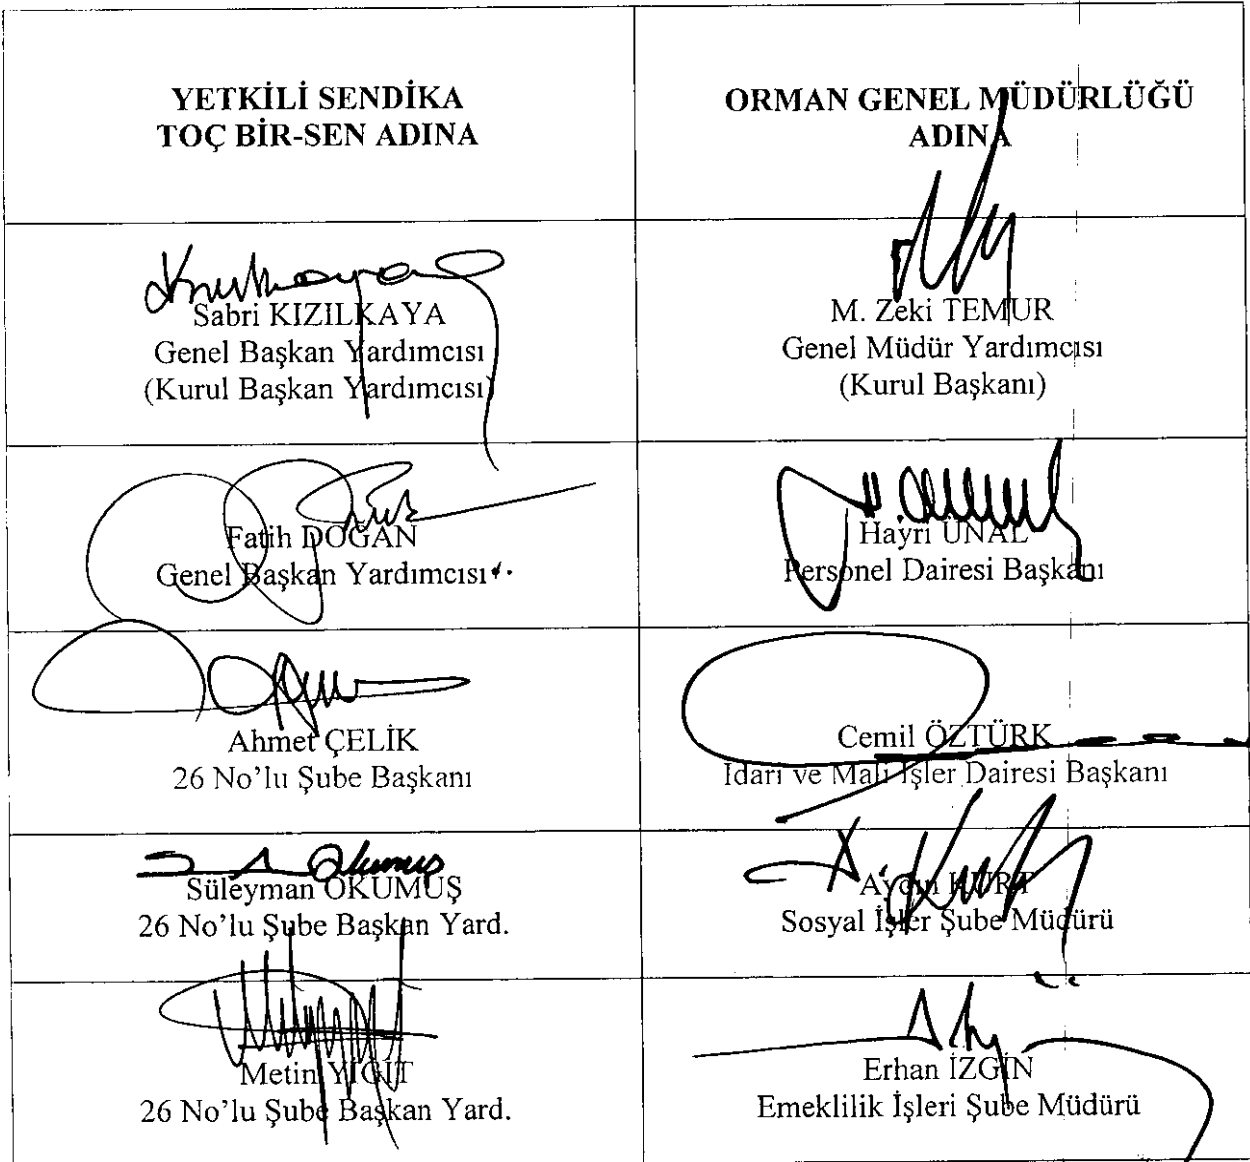 YETKİLİ SENDİKA
TOÇ BİR-SEN ADINA
ORMAN GENEL MÜDÜRLÜĞÜ
ADINA
Sabri KIZILKAYA
Genel Başkan Yardımcısı
(Kurul Başkan Yardımcısı)
M. Zeki TEMUR
Genel Müdür Yardımcısı
(Kurul Başkanı)
Fatih DOĞAN
Genel Başkan Yardımcısı
Hayri ÜNAL
Personel Dairesi Başkanı
Ahmet ÇELİK
26 No'lu Şube Başkanı
Cemil ÖZTÜRK
İdari ve Mali İşler Dairesi Başkanı
Süleyman OKUMUŞ
26 No'lu Şube Başkan Yard.
Aydın KURT
Sosyal İşler Şube Müdürü
Metin YİĞİT
26 No'lu Şube Başkan Yard.
Erhan İZGİN
Emeklilik İşleri Şube Müdürü